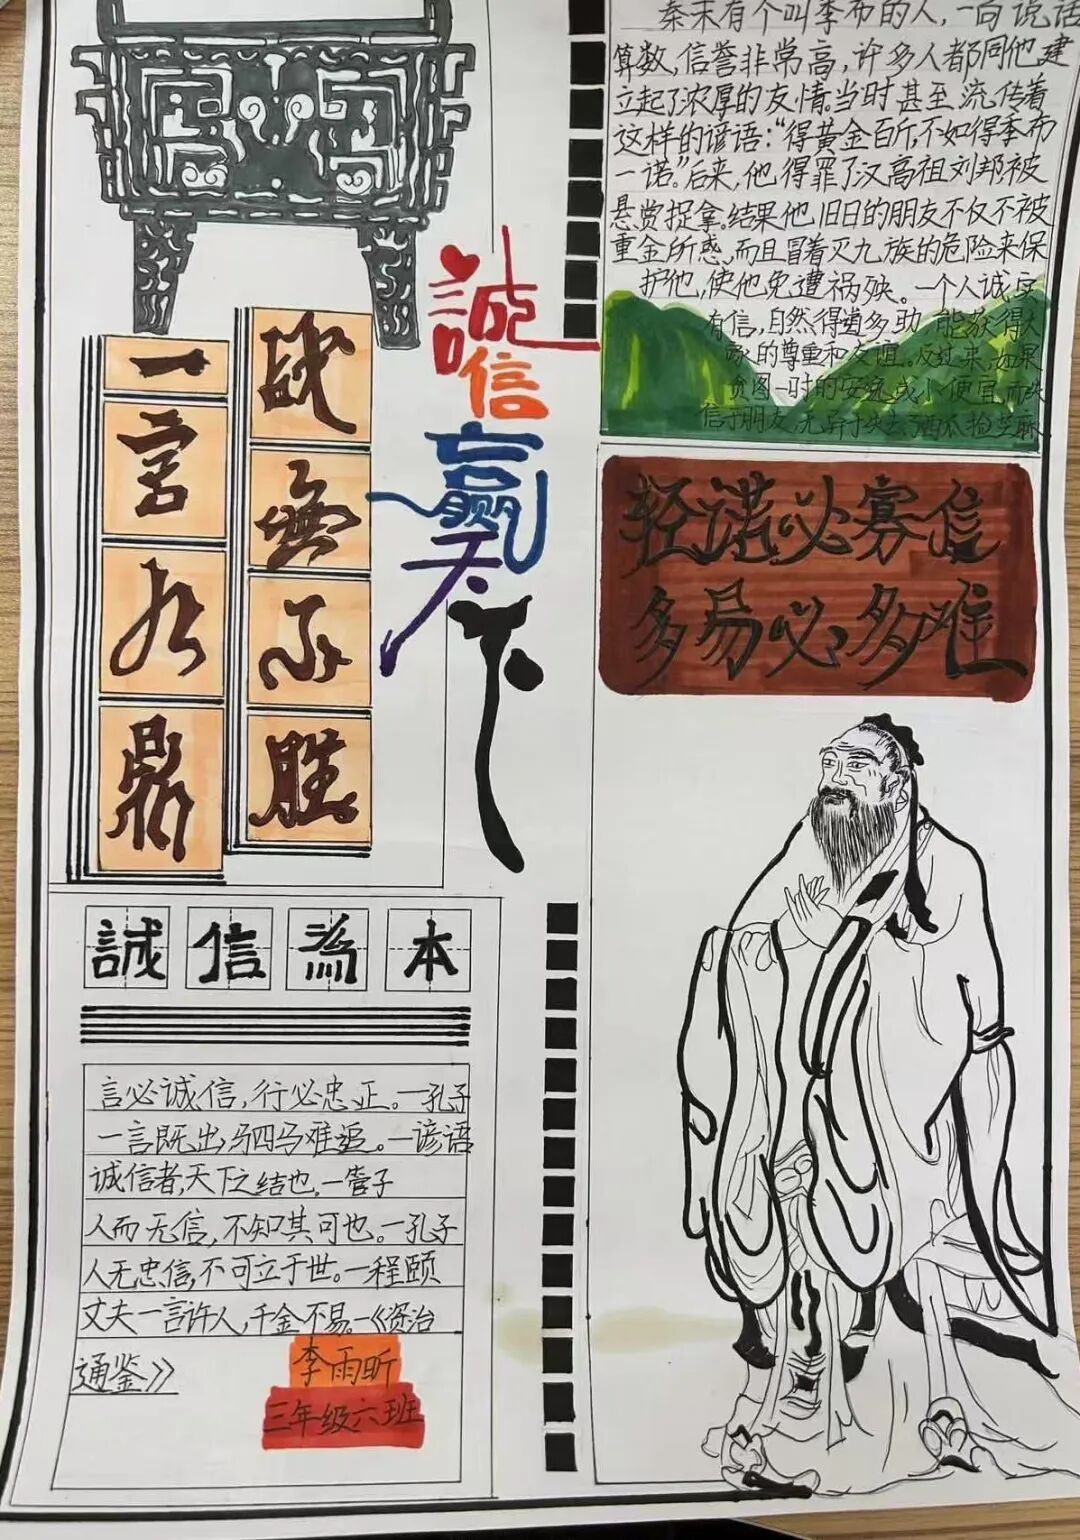 秦末有个叫李布的人，一向说话
算数，信誉非常高，许多人都同他建
立起了浓厚的友情。当时甚至流传着
这样的谚语：“得黄金百斤，不如得季布
一诺。”后来，他得罪了汉高祖刘邦被
悬赏捉拿。结果他旧日的朋友不仅不被
重金所惑，而且冒着灭九族的危险来保
护他，使他免遭祸殃。一个人诚实
有信，自然得道多助，能获得大
家的尊重和友谊。反过来，如果
贪图一时的安逸或小便宜，而失
信于朋友，无异于失去了西瓜捡芝麻
誠信赢天下
一言九鼎
战無不胜
轻诺必寡信
多易必多难
誠信為本
言必诚信，行必忠正。—孔子
一言既出，驷马难追。—谚语
诚信者，天下之结也，—管子
人而无信，不知其可也。—孔子
人无忠信，不可立于世。—程颐
丈夫一言许人，千金不易。—《资治
通鉴》
李雨昕
三年级六班